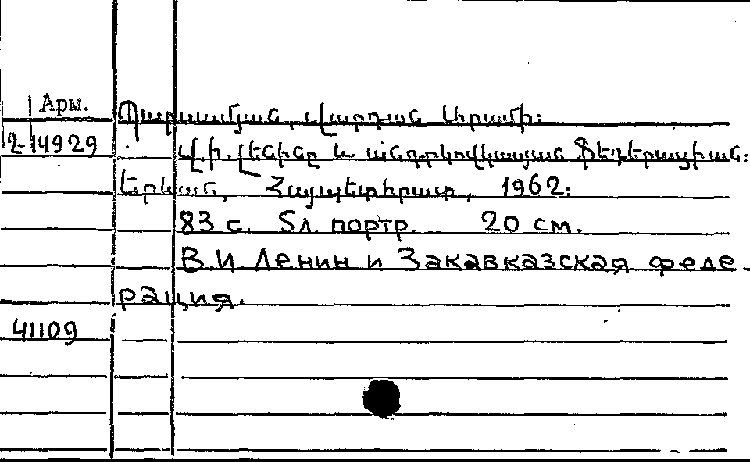 Арм.
Պարսամյան, Վարդան Արամի:
2-14929
Վ.Ի. Լենինը և անդրկովկասյան ֆեդերացիան:
Երևան, Հայպետհրատ, 1962:
83 с. 5л. портр. 20 см.
В.И Ленин и Закавказская феде-
рация.
41109